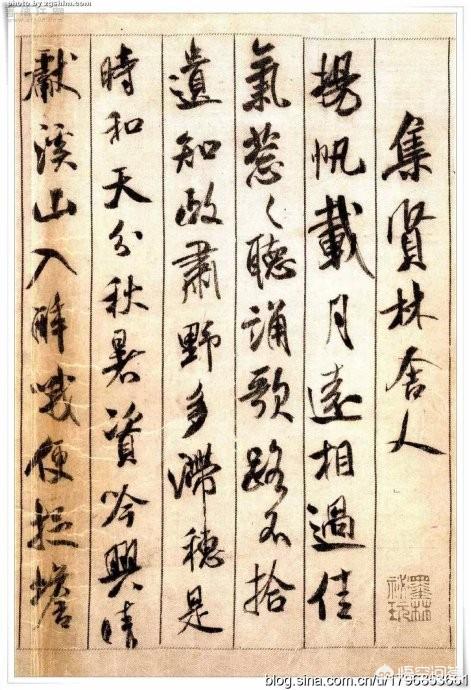 集賢林舍人
揚帆載月遠相過佳
氣葱々聽誦歌路不拾
遺知政肅野多滯穗是
時和天分秋暑資吟興晴
獻溪山入醉哦便捉蟾
墨林
秘玩
悟空问答
blog.sina.com.cn/u/